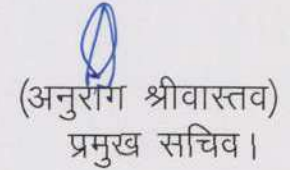 (अनुराग श्रीवास्तव)
प्रमुख सचिव।